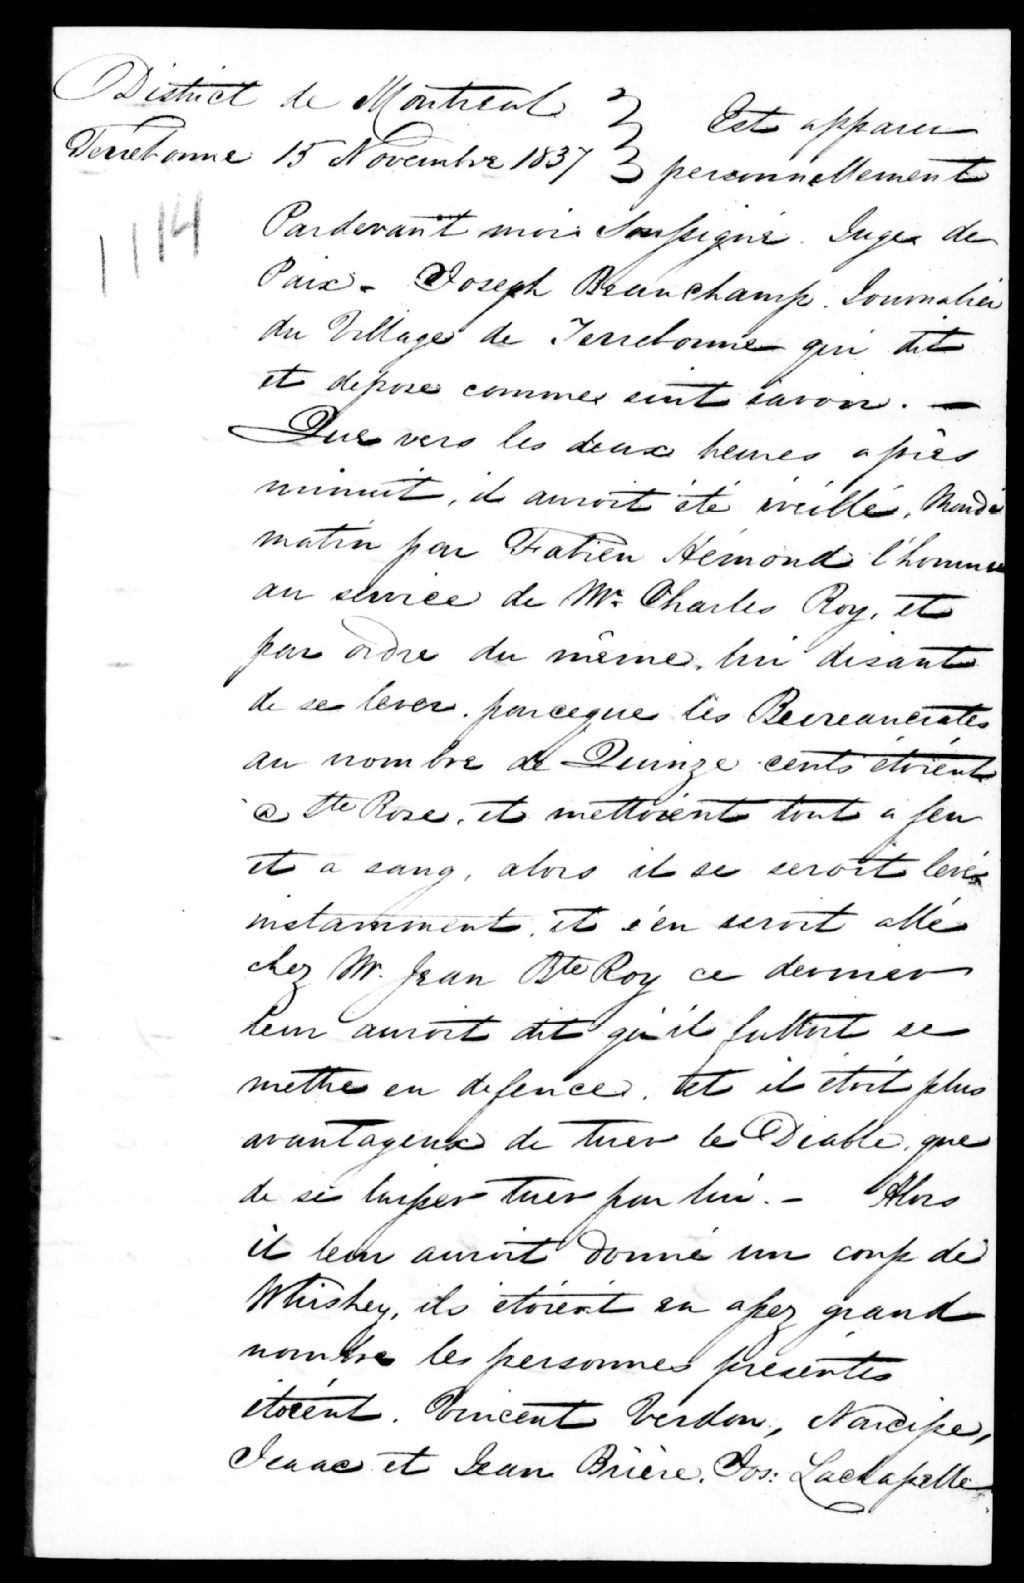 District de Montreal } Est apparu
Terrebonne 15 Novembre 1837 } personnellement
1114
Pardevant moi Soussigné. Juge de
Paix - Joseph Beauchamp. Journalier
du Village de Terrebonne qui dit
et depose comme suit savoir. —
Que vers les deux heures après
minuit, il auroit été éveillé, Mardi
matin par Fabien Hémond l'homme
au service de Mr. Charles Roy, et
par ordre du même, lui disant
de se lever, parceque les Beureaucrates
au nombre de Quinze cents étoient
a Ste Rose, et mettoient tout a feu
et a sang, alors il se seroit levé
instamment, et s'en seroit allé
chez Mr. Jean Bte Roy ce dernier
leur auroit dit qu'il falloit se
mettre en defence, et il étoit plus
avantageux de tuer le Diable, que
de se laisser tuer par lui. - Alors
il leur auroit donné un coup de
Whiskey, ils étoient en assez grand
nombre les personnes présentes
étoient. Vincent Verdon, Narcisse,
Isaac et Jean Brière, Jos: Lachapelle